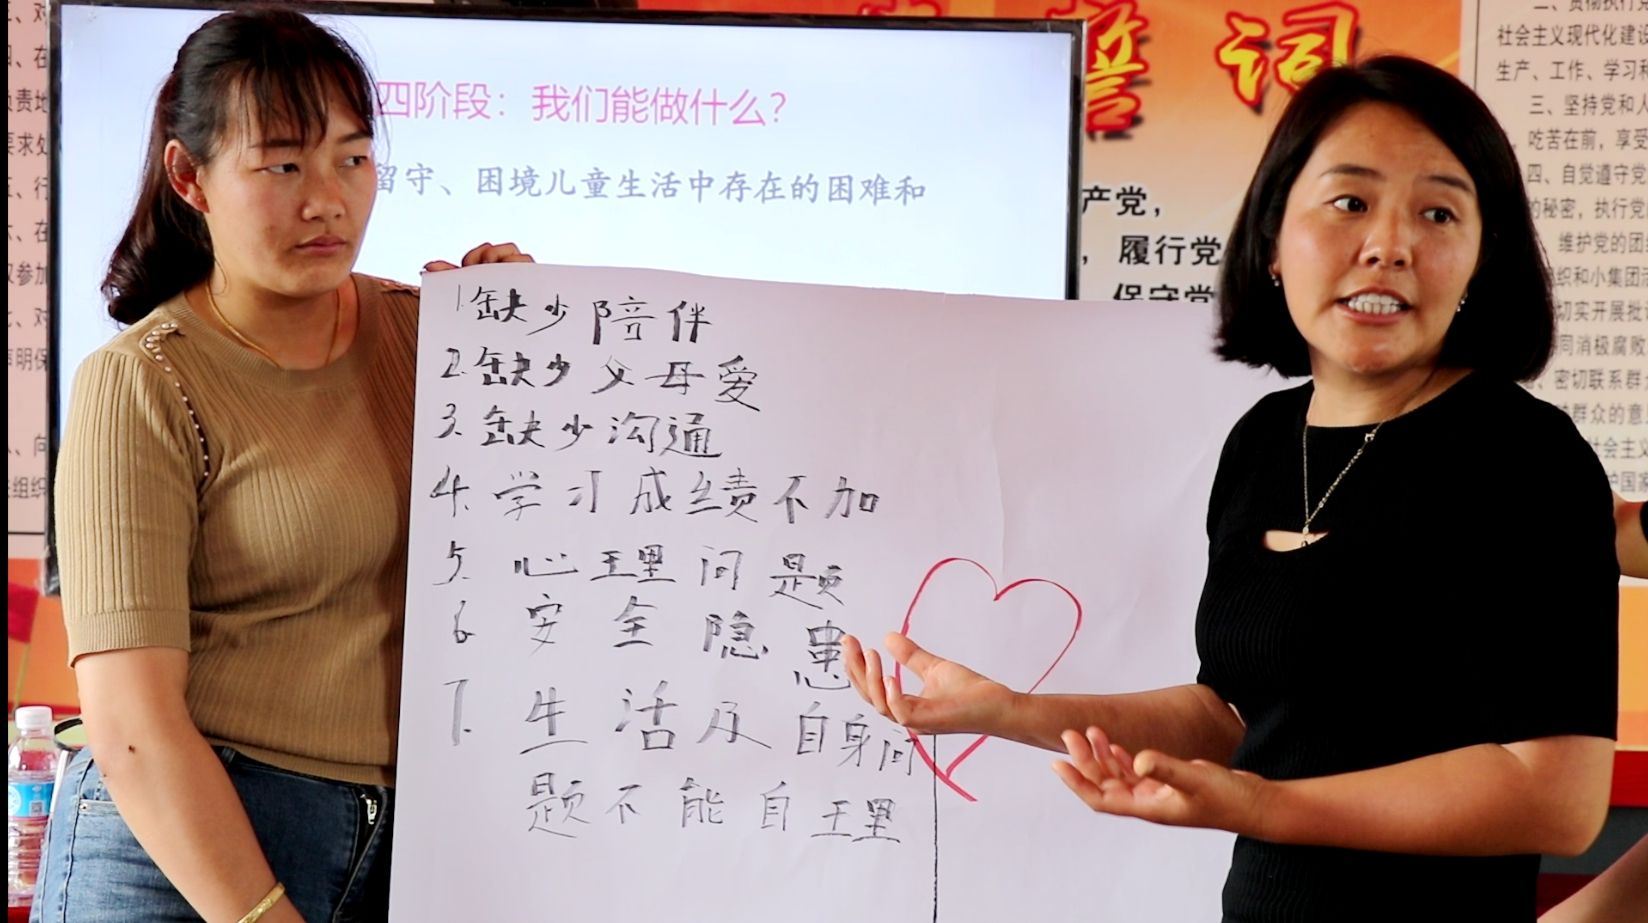 四阶段：我们能做什么？
留守、困境儿童生活中存在的困难和
1.缺少陪伴
2.缺少父母爱
3.缺少沟通
4.学习成绩不加
5.心理问题
6 安全隐患
7.生活及自身问
题不能自理
誓词
产党，
，履行党
保守党
二、贯彻执行党
社会主义现代化建设
生产、工作、学习和
三、坚持党和人
，吃苦在前，享受
四、自觉遵守党
的秘密，执行党
维护党的团
组织和小集团
切实开展批
同消极腐败
、密切联系群
群众的意
社会主义
护国家
、对
四、在
负责地
要求处
五、行
六、在
议参加
七、对
声明保
、向
组织